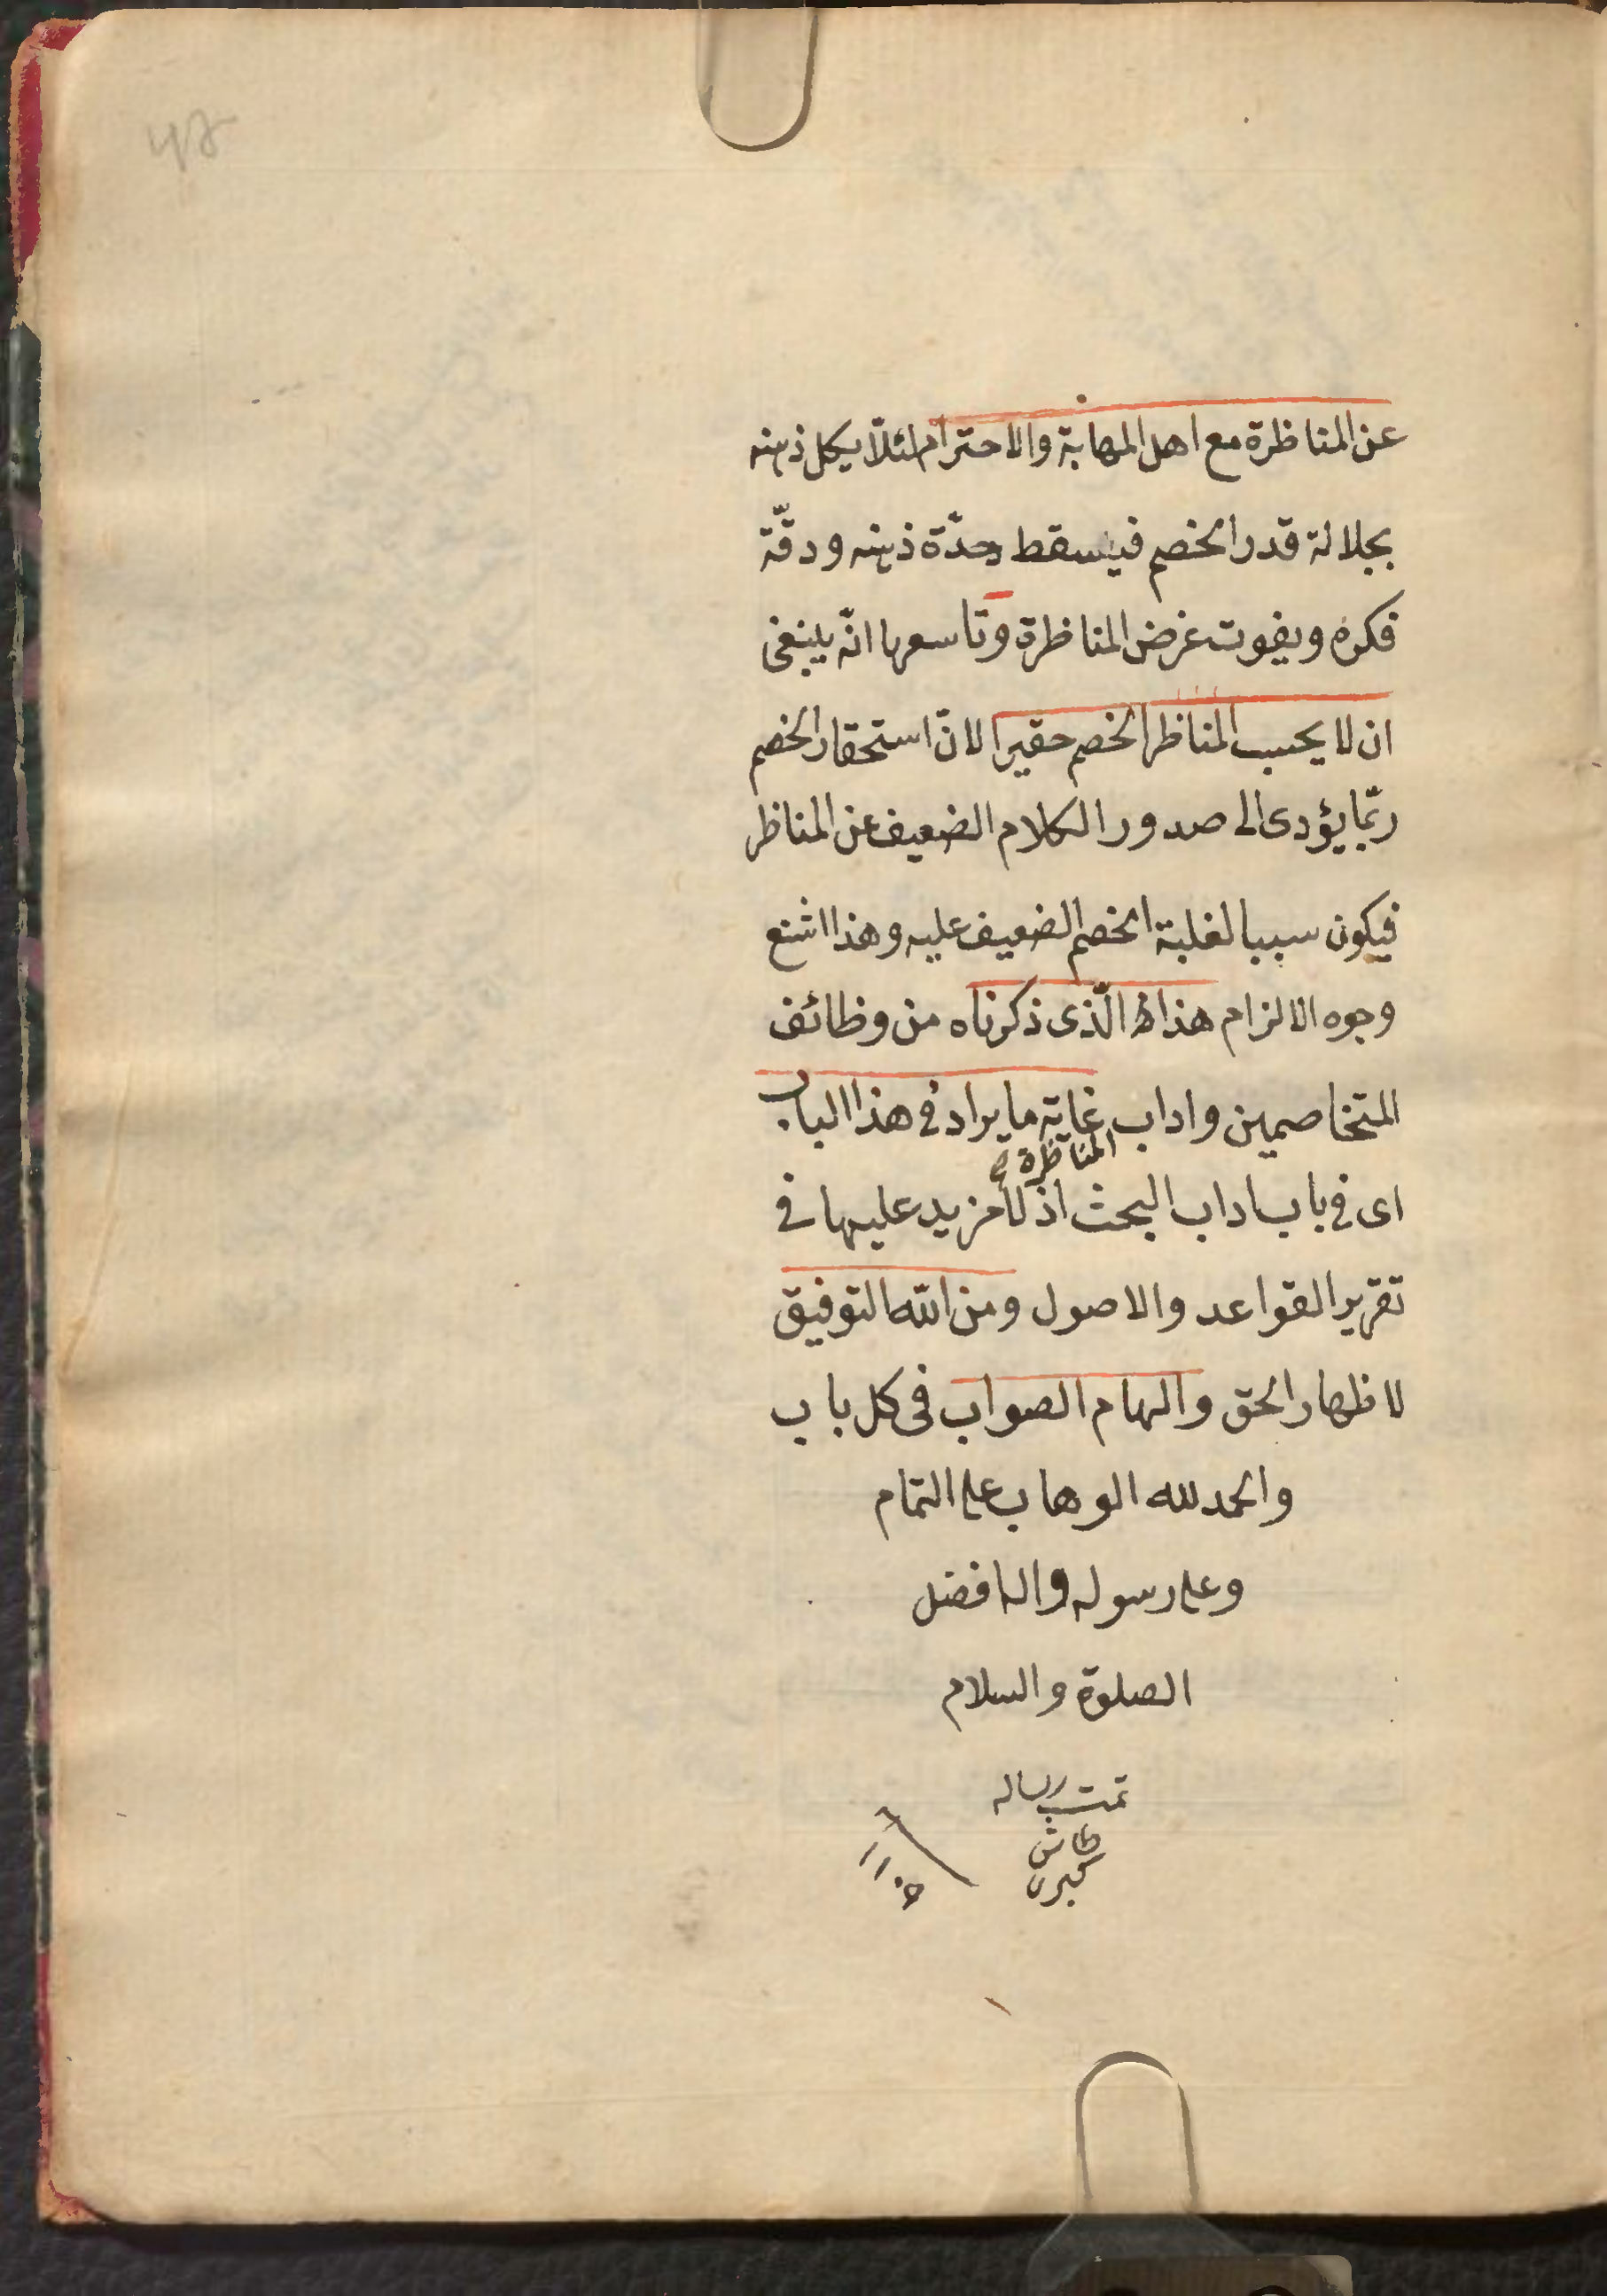 عن المناظرة مع اهل المهابة والاحترام لئلّا يكل ذهنه
بجلالة قدر الخصم فيسقط حدّة ذهنه ودقّة
فكره ويفوت غرض المناظرة وتاسعها انّه ينبغى
ان لا يحسب المناظر الخصم حقيرا لانّ استحقار الخصم
ربّما يؤدى الى صدور الكلام الضعيف عن المناظر
فيكون سببا لغلبة الخصم الضعيف عليه وهذا اشنع
وجوه الالزام هذا الّذى ذكرناه من وظائف
المتخاصمين واداب غاية ما يراد فى هذا الباب
المناظرة
اى فى باب اداب البحث اذ لا مزيد عليها فى
تقرير القواعد والاصول ومن الله التوفيق
لاظهار الحق والهام الصواب فى كل باب
والحمد لله الوهاب على التمام
وعلى رسوله واله افضل
الصلوة والسلام
تمت رساله
طاش
كبرى